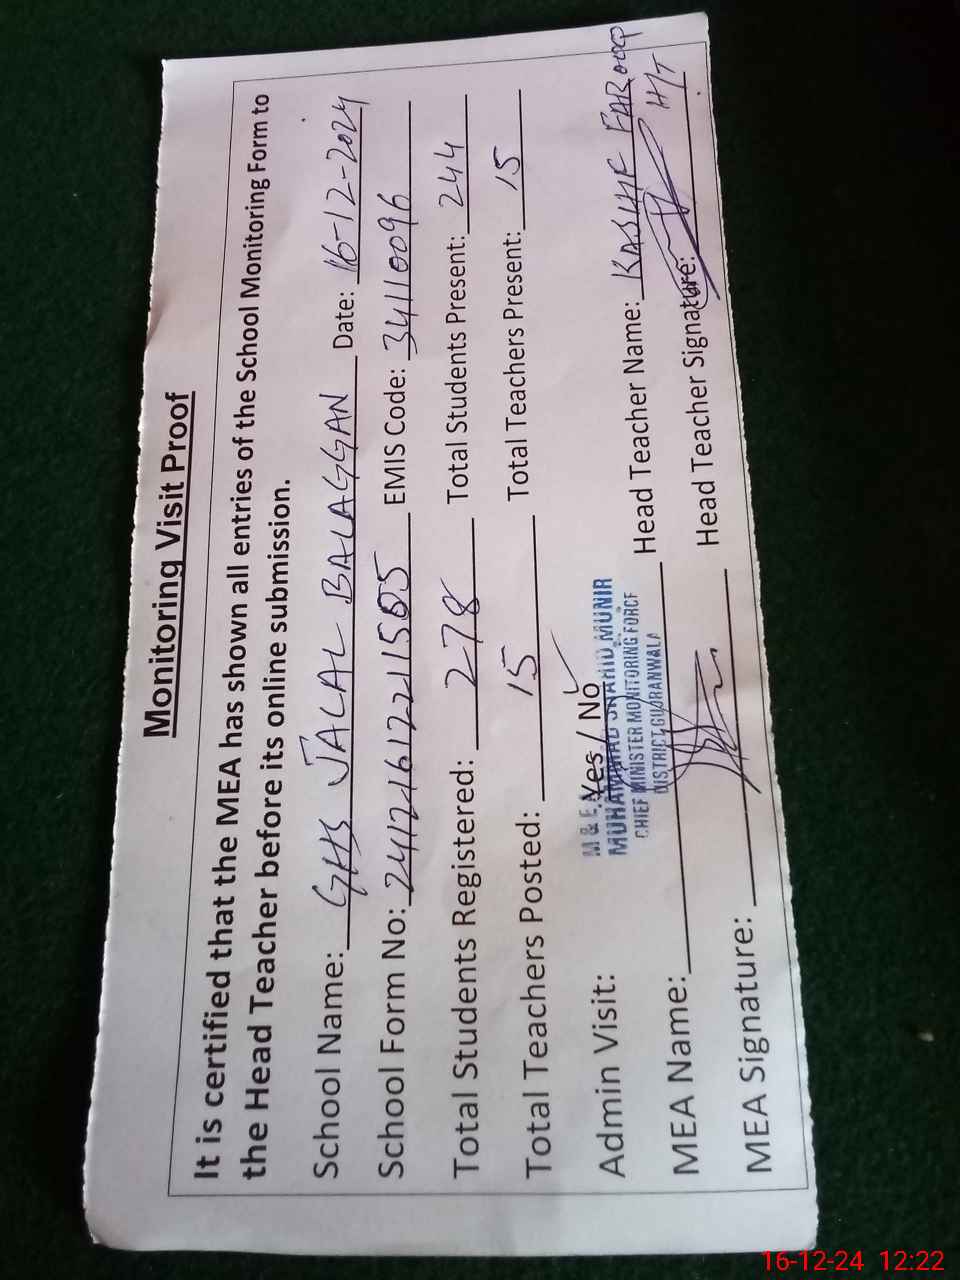 Monitoring Visit Proof
It is certified that the MEA has shown all entries of the School Monitoring Form to
the Head Teacher before its online submission.
School Name: GHS JALAL BALAGGAN Date: 16-12-2024
School Form No: 2412161221505 EMIS Code: 34110096
Total Students Registered: 278 Total Students Present: 244
Total Teachers Posted: 15 Total Teachers Present: 15
Admin Visit: Yes / No ✓
M & E A
MUHAMMAD SHAHID MUNIR
CHIEF MINISTER MONITORING FORCE
DISTRICT GUJRANWALA
MEA Name: Head Teacher Name: KASHIF FAROOQ
MEA Signature: Head Teacher Signature: H/T
16-12-24 12:22